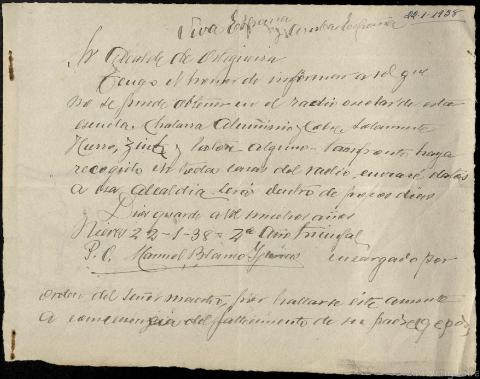 Viva España y Arriba España
22-1-1938
Sr Alcalde de Ortigueira
Tengo el honor de informar a Vd que
no se puede obtener en el radio escolar de esta
escuela, Chatarra Aluminio y Cobre solamente
Hierro, Zinc y latón alguno tan pronto haya
recogido en toda casa del radio, enviaré datos
a esa Alcaldia será dentro de pocos dias
Dios guarde a Vd muchos años
Nieves 22-1-38 = 2º Año Triunfal
P. O. Manuel Blanco encargado por
orden del señor maestro, por hallarse éste ausente
a consecuencia del fallecimiento de su padre